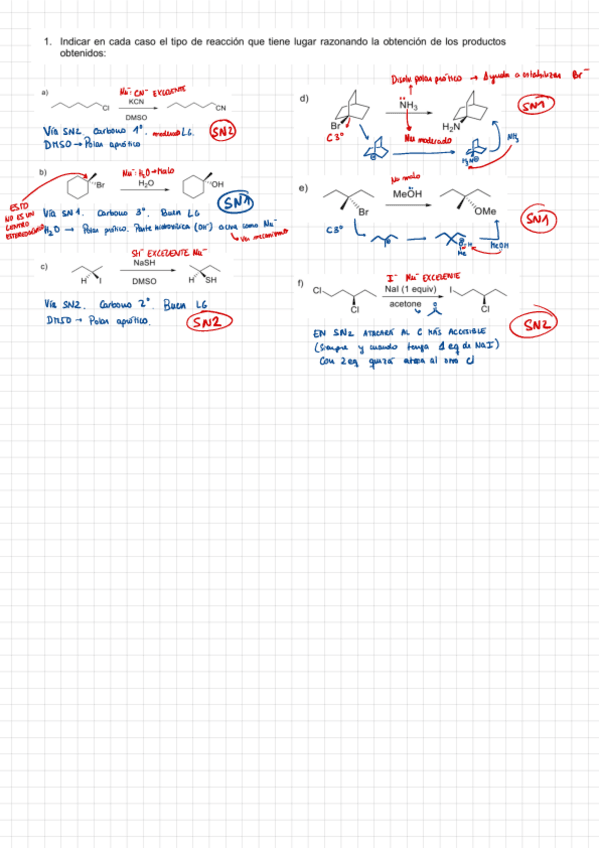 1. Indicar en cada caso el tipo de reacción que tiene lugar razonando la obtención de los productos
obtenidos:
a)
Nu⁻: CN⁻ EXCELENTE
KCN
Cl
CN
DMSO
Vía SN2. Carbono 1º. moderado LG.
SN2
DMSO → Polar aprótico
b)
Nu⁻: H2O → Malo
H2O
Br
OH
ESTO
NO ES UN
CENTRO
Vía SN1. Carbono 3º. Buen LG
SN1
H2O → Polar prótico. Parte (OH⁻) actúa como Nu⁻
Ver mecanismo
SH⁻ EXCELENTE Nu⁻
c)
NaSH
H
I
DMSO
H
SH
Vía SN2. Carbono 2º. Buen LG
DMSO → Polar aprótico.
SN2
Disolv polar prótico → Ayuda a estabilizar Br⁻
d)
NH3
SN1
Br
H2N
C3º
Nu moderado
NH3
H3N⊕
e)
Nu malo
MeOH
Br
OMe
SN1
C3º
MeOH
Me
f)
I⁻ Nu⁻ EXCELENTE
Cl
NaI (1 equiv)
I
acetone
Cl
Cl
SN2
EN SN2 ATACARÁ AL C MÁS ACCESIBLE
(siempre y cuando tenga 1 eq de NaI)
Con 2eq quizá ataca al otro Cl